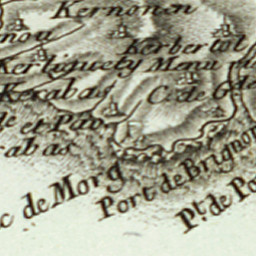 Kernonen
Kerbertol
Kerliguety Menu
Kerabas
C. de G
et Pav
abas
c de Morg
Port de Brignon
Pt. de Po